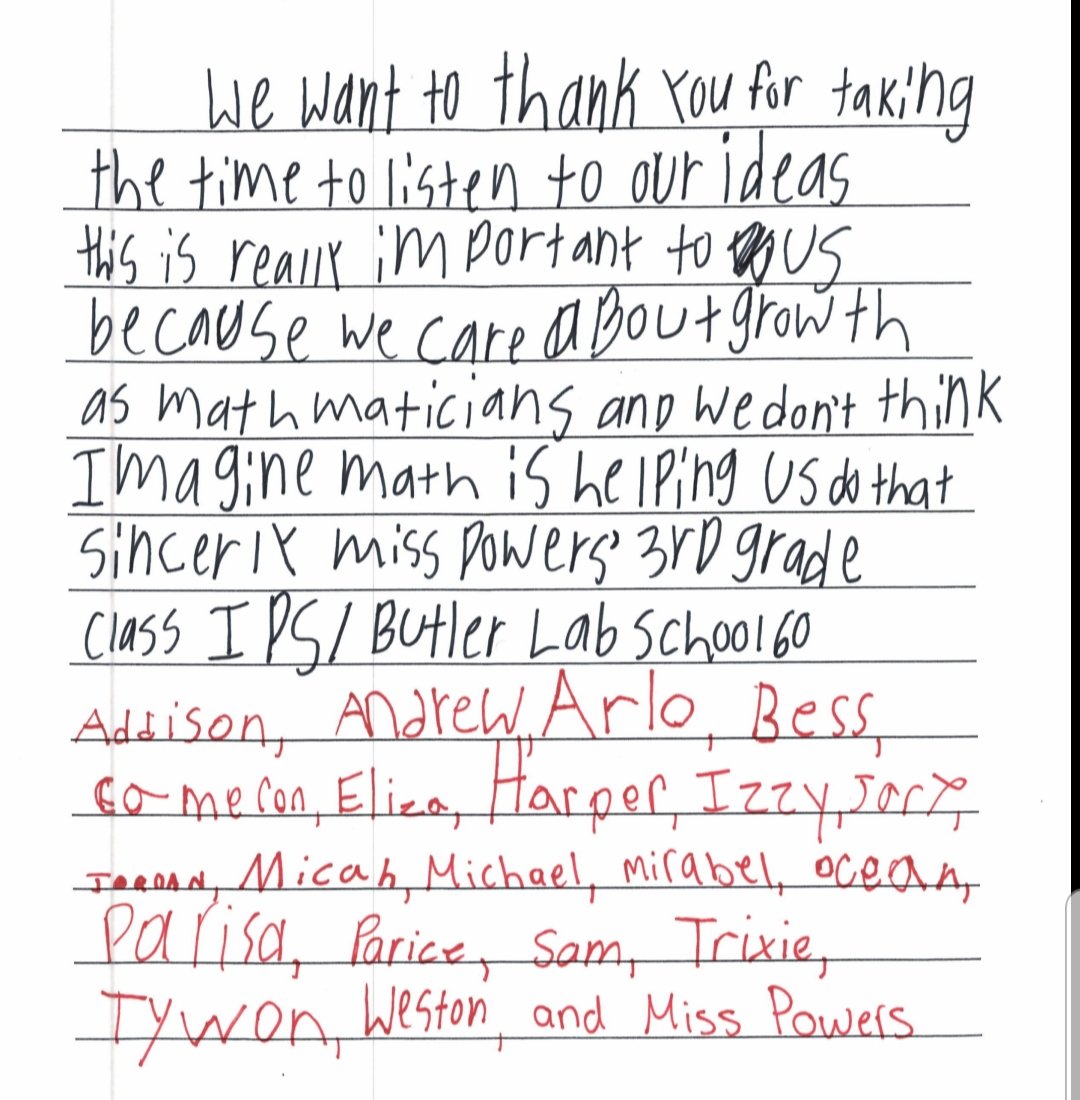 We want to thank You for taking
the time to listen to our ideas
this is really important to us
because we care aBout growth
as mathmaticians anD we don't think
Imagine math is helping us do that
sincerly miss Powers' 3rD grade
class IPS/Butler Lab School 60
Addison, Andrew, Arlo, Bess,
Cameron, Eliza, Harper, Izzy,
JORDAN, Micah, Michael, mirabel, ocean,
Parisa, Parice, Sam, Trixie,
Tywon, Weston, and Miss Powers